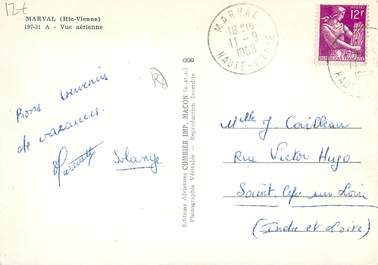 12f
MARVAL (Hte-Vienne)
197-31 A - Vue aérienne
MARVAL
18-15
11-9
1958
HAUTE-VIENNE
12F
Bons souvenirs
de vacances.
Solange
Editions Aériennes COMBIER IMP. MACON (S.-et-L.)
Photographie Véritable - Reproduction Interdite
Mlle J Cailleau
Rue Victor Hugo
Saint Cyr sur Loire
(Indre et Loire)